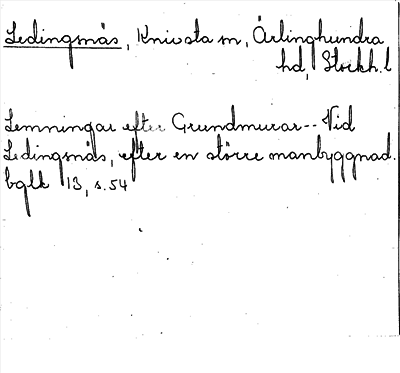 Ledingsnäs, Knivsta sn, Ärlinghundra
hd, Stockh. l
Lemningar efter Grundmurar -- Vid
Ledingsnäs, efter en större manbyggnad.
bqlk 13, s. 54